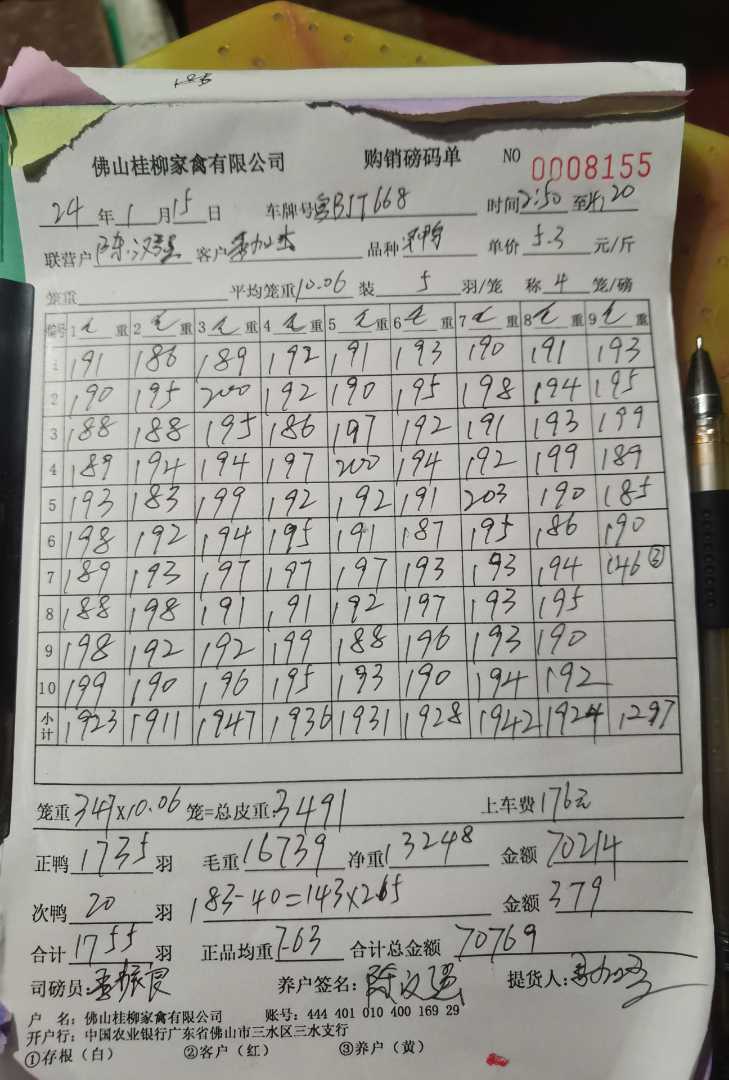 佛山桂柳家禽有限公司 购销磅码单 NO 0008155
24年1月15日 车牌号BJT668 时间2:50至4:20
联营户 客户 品种 单价5.3元/斤
笼重 平均笼重10.06 装5羽/笼 称4笼/磅
编号 1毛重 2毛重 3毛重 4毛重 5毛重 6毛重 7毛重 8毛重 9毛重
1 191 186 189 192 191 193 190 191 193
2 190 195 200 192 190 195 198 194 195
3 188 188 195 186 197 192 191 193 199
4 189 194 194 197 200 194 192 199 189
5 193 183 199 192 192 191 203 190 185
6 198 192 194 195 191 187 195 186 190
7 189 193 197 197 197 193 193 194 146③
8 188 198 191 191 192 197 193 195
9 198 192 192 199 188 196 193 190
10 199 190 196 195 193 190 194 192
小计 1923 1911 1947 1936 1931 1928 1942 1924 1297
笼重347×10.06笼=总皮重:3491 上车费176元
正鸭1735羽 毛重16739 净重13248 金额70214
次鸭20羽 183-40=143×265 金额379
合计1755羽 正品均重7.63 合计总金额70769
司磅员: 养户签名:陈汉强 提货人:
户 名:佛山桂柳家禽有限公司 账号:444 401 010 400 169 29
开户行:中国农业银行广东省佛山市三水区三水支行
①存根(白) ②客户(红) ③养户(黄)